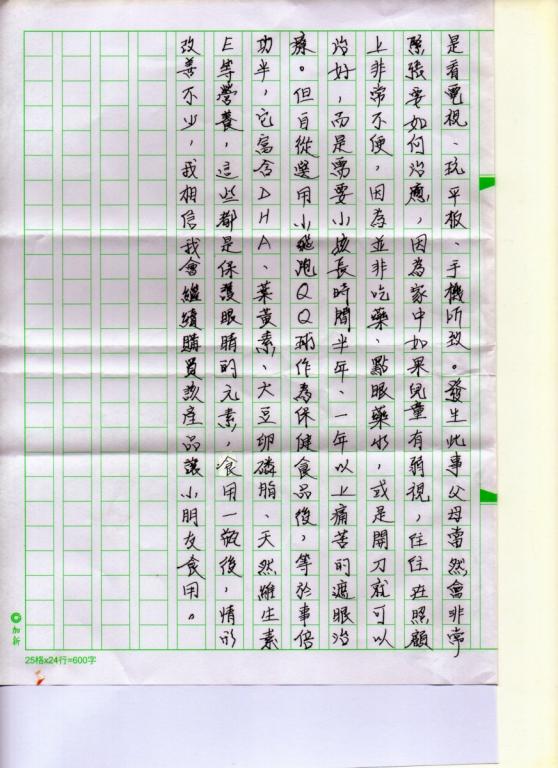 是看電視、玩平板、手機所致。發生此事父母當然會非常
緊張要如何治療，因為家中如果兒童有弱視，往往在照顧
上非常不便，因為並非吃藥、點眼藥水，或是開刀就可以
治好，而是需要小孩長時間半年、一年以上痛苦的遮眼治
療。但自從選用小飛跑QQ球作為保健食品後，等於事倍
功半，它富含DHA、葉黃素、大豆卵磷脂、天然維生素
E等營養，這些都是保護眼睛的元素，食用一瓶後，情形
改善不少，我相信我會繼續購買該產品讓小朋友食用。
加新
25格x24行=600字